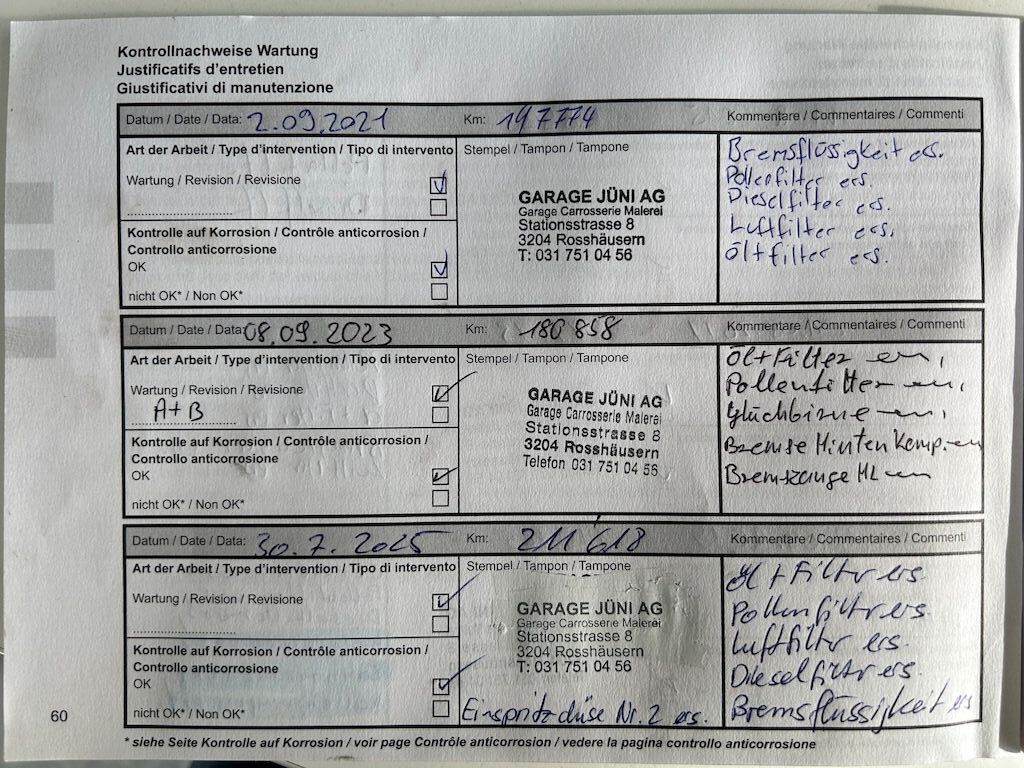 Kontrollnachweise Wartung
Justificatifs d'entretien
Giustificativi di manutenzione
Datum / Date / Data: 2.09.2021 Km: 197774 Kommentare / Commentaires / Commenti
Art der Arbeit / Type d'intervention / Tipo di intervento Stempel / Tampon / Tampone
Bremsflüssigkeit ers.
Wartung / Revision / Revisione
Pollenfilter ers.
Dieselfilter ers.
Luftfilter ers.
Öl+filter ers.
GARAGE JÜNI AG
Garage Carrosserie Malerei
Stationsstrasse 8
3204 Rosshäusern
T: 031 751 04 56
Kontrolle auf Korrosion / Contrôle anticorrosion /
Controllo anticorrosione
OK
nicht OK* / Non OK*
Datum / Date / Data: 08.09.2023 Km: 180 858 Kommentare / Commentaires / Commenti
Art der Arbeit / Type d'intervention / Tipo di intervento Stempel / Tampon / Tampone
Wartung / Revision / Revisione
A+B
Öl+Filter
Pollenfilter
Bremse Hinten Komp.
Bremszange HL
GARAGE JÜNI AG
Garage Carrosserie Malerei
Stationsstrasse 8
3204 Rosshäusern
Telefon 031 751 04 56
Kontrolle auf Korrosion / Contrôle anticorrosion /
Controllo anticorrosione
OK
nicht OK* / Non OK*
Datum / Date / Data: 30.7.2025 Km: 211'618 Kommentare / Commentaires / Commenti
Art der Arbeit / Type d'intervention / Tipo di intervento Stempel / Tampon / Tampone
Wartung / Revision / Revisione
Öl+Filtr ers.
Pollenfiltr ers.
Luftfiltr ers.
Dieselfiltr ers.
Bremsflüssigkeit ers
GARAGE JÜNI AG
Garage Carrosserie Malerei
Stationsstrasse 8
3204 Rosshäusern
T: 031 751 04 56
Kontrolle auf Korrosion / Contrôle anticorrosion /
Controllo anticorrosione
OK
nicht OK* / Non OK*
Einspritzdüse Nr. 2 ers.
60
* siehe Seite Kontrolle auf Korrosion / voir page Contrôle anticorrosion / vedere la pagina controllo anticorrosione